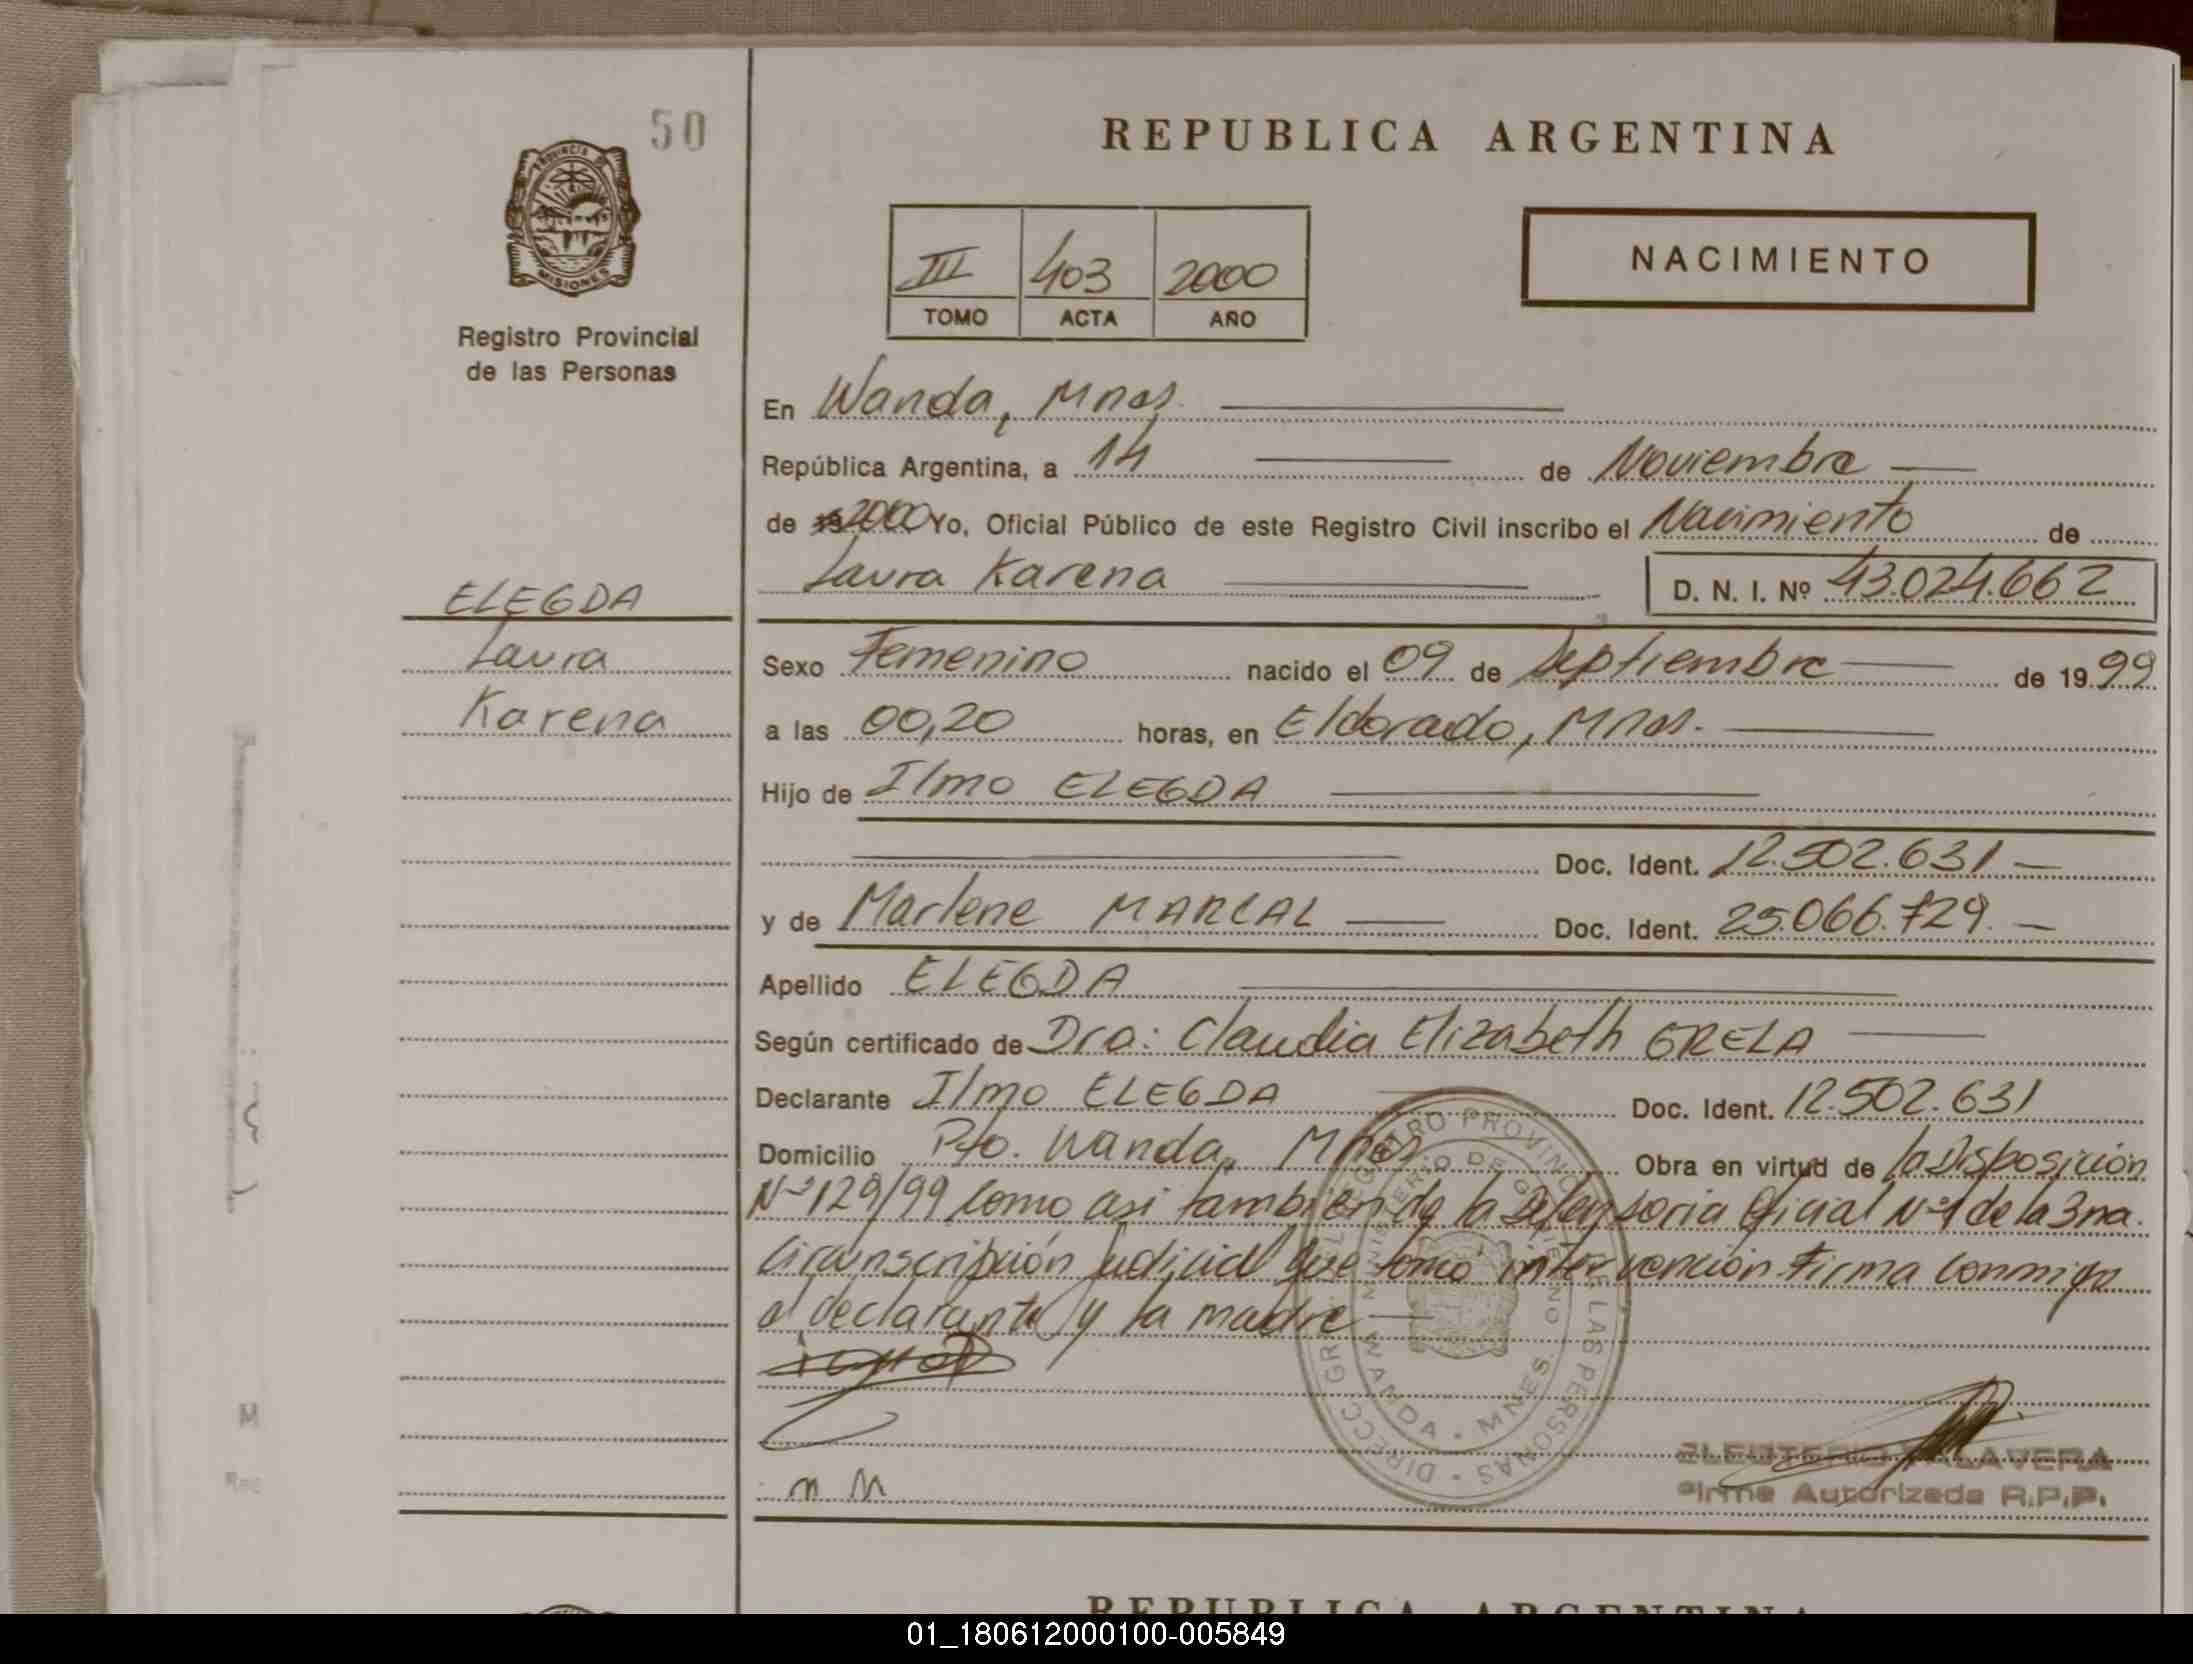 50
PROVINCIA DE
MISIONES
Registro Provincial
de las Personas
REPUBLICA ARGENTINA
III 403 2000
TOMO ACTA AÑO
NACIMIENTO
En Wanda, Mnes.
República Argentina, a 14 de Noviembre
de 19 2000 Yo, Oficial Público de este Registro Civil inscribo el Nacimiento de
Laura Karena
D. N. I. Nº 43.024.662
ELEGDA
Laura
Karena
Sexo Femenino nacido el 09 de Septiembre de 1999
a las 00,20 horas, en Eldorado, Mnes.
Hijo de Ilmo ELEGDA
Doc. Ident. 12.502.631
y de Marlene MARCAL Doc. Ident. 25.066.729.
Apellido ELEGDA
Según certificado de Dra: Claudia Elizabeth GRELA
Declarante Ilmo ELEGDA Doc. Ident. 12.502.631
Domicilio Pto. Wanda, Mnes Obra en virtud de la Disposición
Nº 129/99 como asi también de la Defensoria Oficial Nº 1 de la 3ra.
Circunscripción Judicial que tomó intervención. Firma conmigo
el declarante y la madre
M M
DIRECC. GRAL. REGISTRO PROVINC. DE LAS PERSONAS
MINISTERIO DE GOBIERNO
WANDA - MNES.
ELEUTERIO TALAVERA
Firma Autorizada R.P.P.
M
REPUBLICA ARGENTINA
01_180612000100-005849